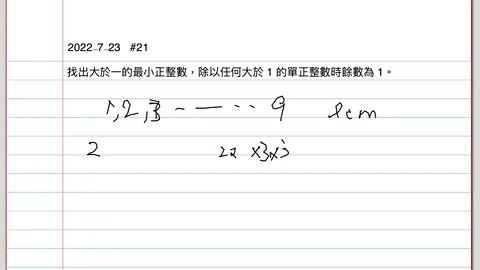 2022-7-23 #21
找出大於一的最小正整數，除以任何大於 1 的單正整數時餘數為 1。
1,2,3 - — - - 9 lcm
2 2x x3x3